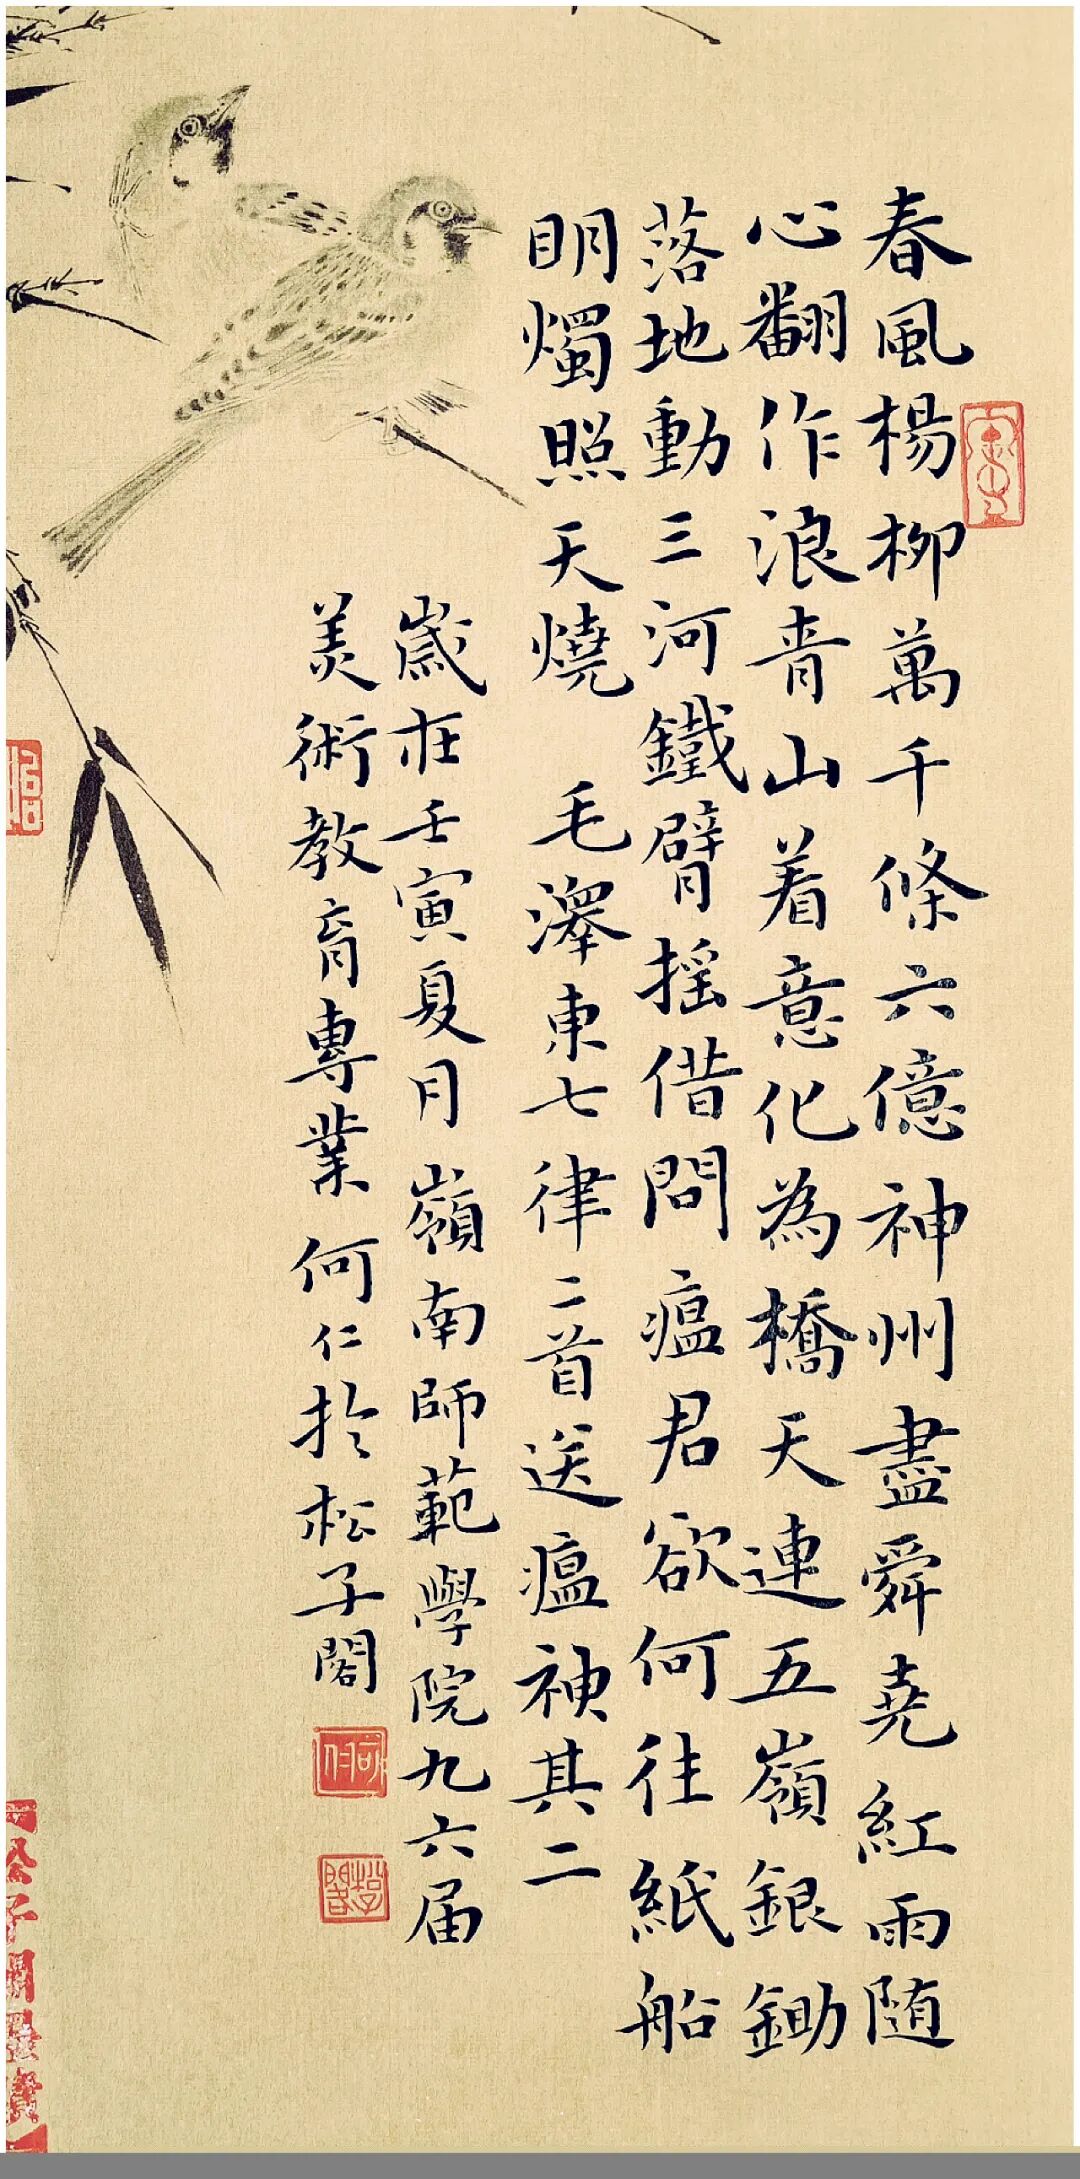 春風楊柳萬千條六億神州盡舜堯紅雨随
心翻作浪青山着意化為橋天連五嶺銀鋤
落地動三河鐵臂摇借問瘟君欲何往紙船
明燭照天燒 毛澤東七律二首送瘟神其二
歲在壬寅夏月嶺南師範學院九六届
美術教育專業何仁於松子閣